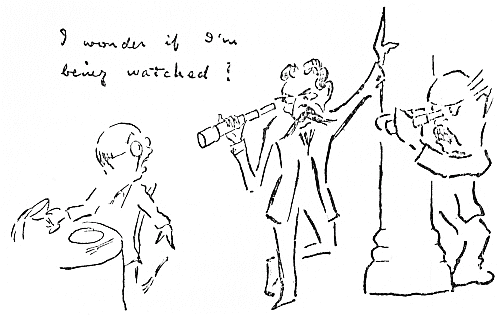 I wonder if I'm
being watched!